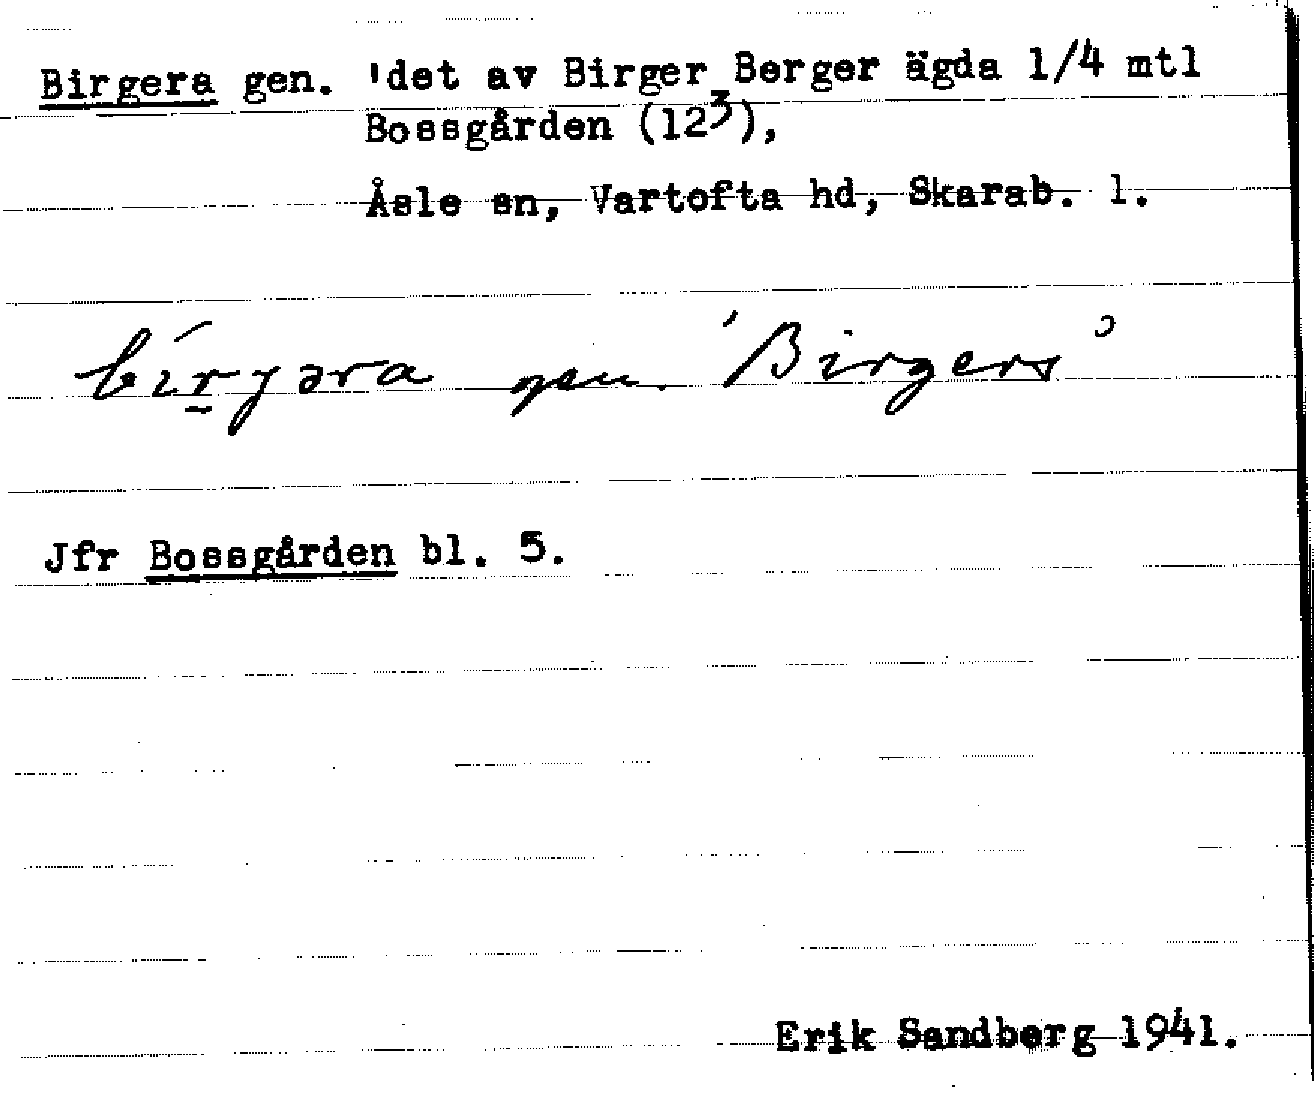 Birgera gen. 'det av Birger Berger ägda 1/4 mtl
Bossgården (12³),
Åsle sn, Vartofta hd, Skarab. l.
bír̠jəra gen. 'Birgers'
Jfr Bossgården bl. 5.
Erik Sandberg 1941.